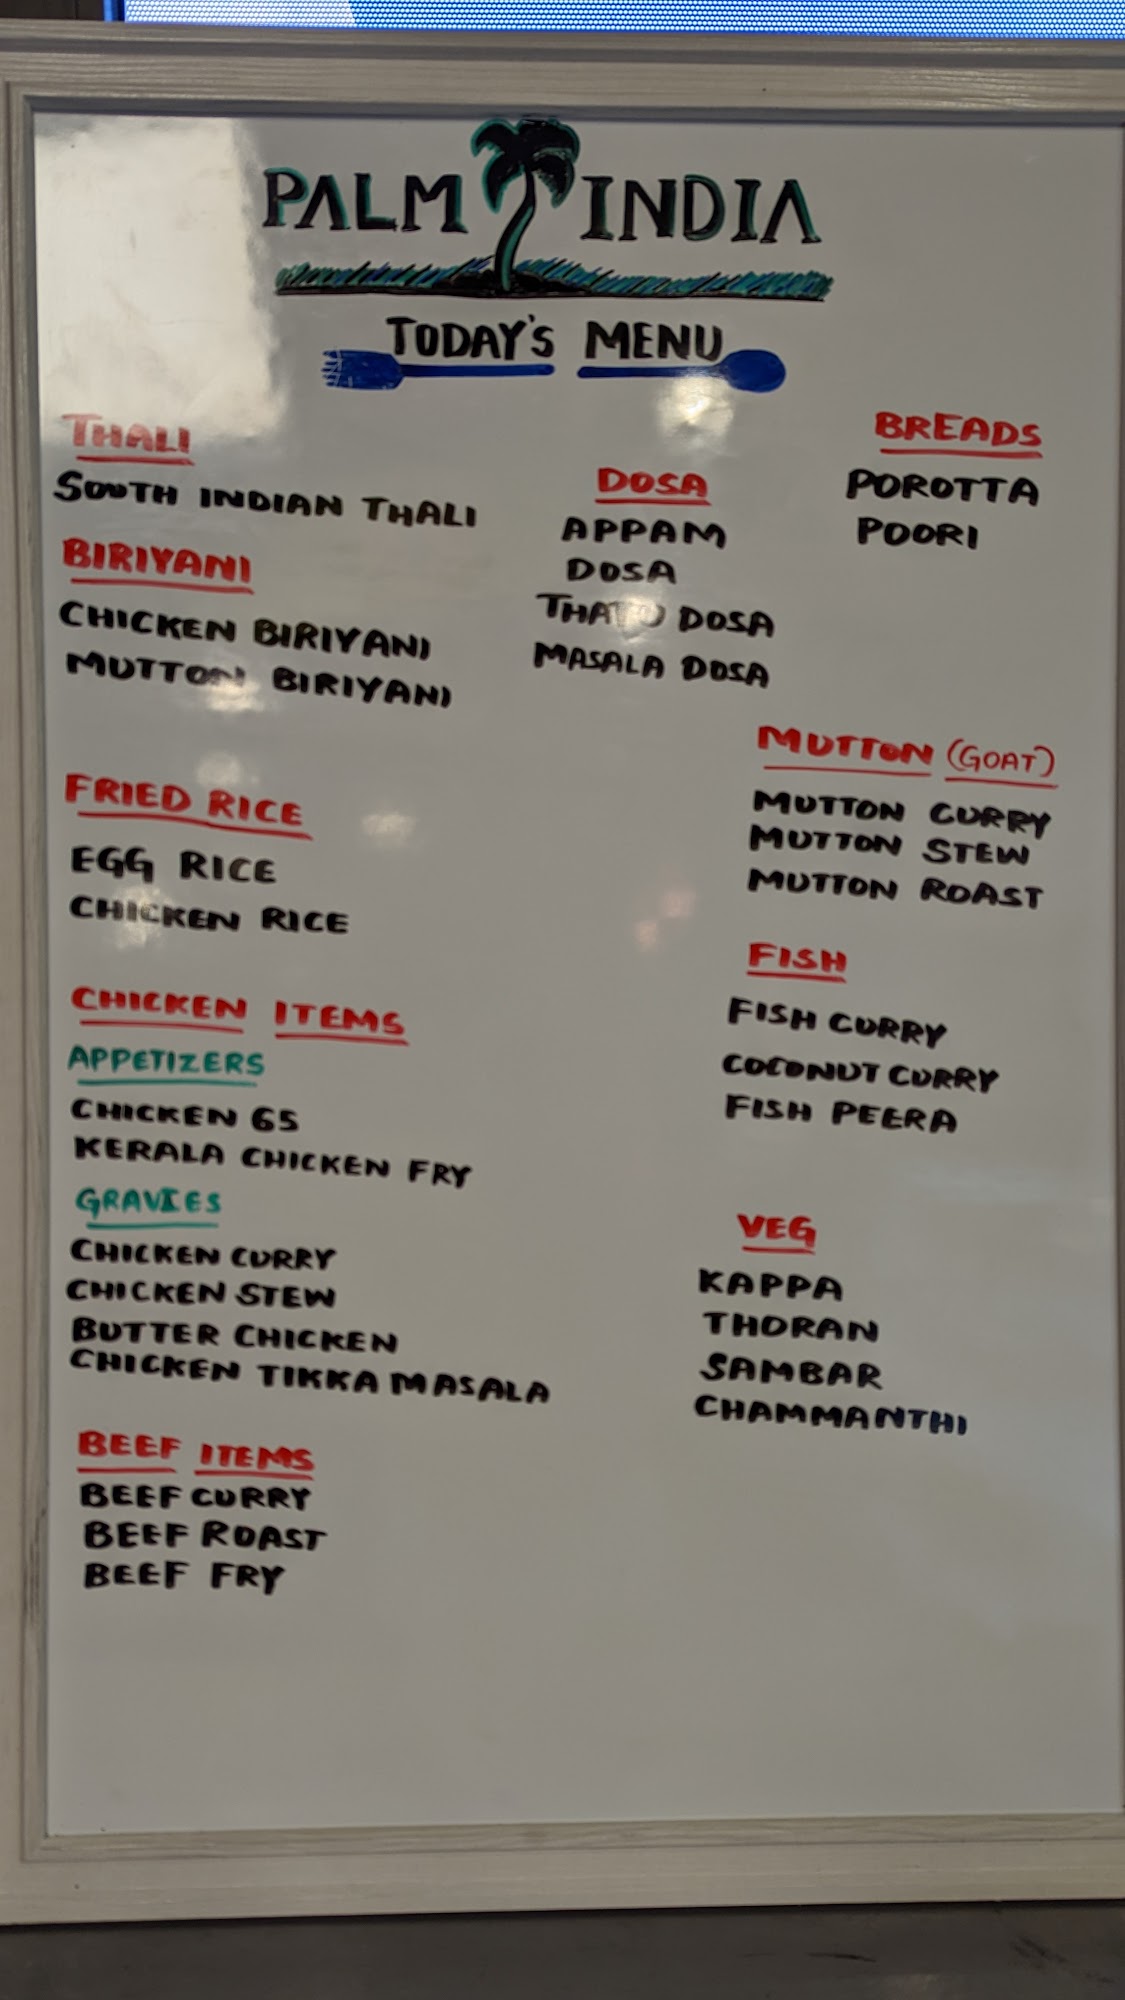 PALM INDIA
TODAY'S MENU
THALI
SOUTH INDIAN THALI
BIRIYANI
CHICKEN BIRIYANI
MUTTON BIRIYANI
FRIED RICE
EGG RICE
CHICKEN RICE
CHICKEN ITEMS
APPETIZERS
CHICKEN 65
KERALA CHICKEN FRY
GRAVIES
CHICKEN CURRY
CHICKEN STEW
BUTTER CHICKEN
CHICKEN TIKKA MASALA
BEEF ITEMS
BEEF CURRY
BEEF ROAST
BEEF FRY
DOSA
APPAM
DOSA
DOSA
MASALA DOSA
BREADS
POROTTA
POORI
MUTTON (GOAT)
MUTTON CURRY
MUTTON STEW
MUTTON ROAST
FISH
FISH CURRY
COCONUT CURRY
FISH PEERA
VEG
KAPPA
THORAN
SAMBAR
CHAMMANTHI